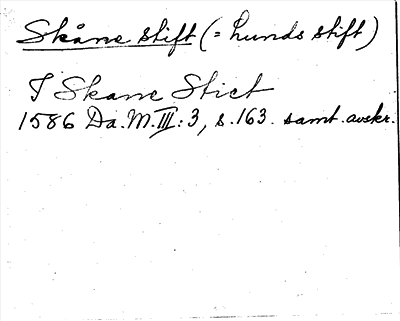 Skåne stift (= Lunds stift)
I Skane Stict
1586 Da.M.III:3, s.163. samt.avskr.